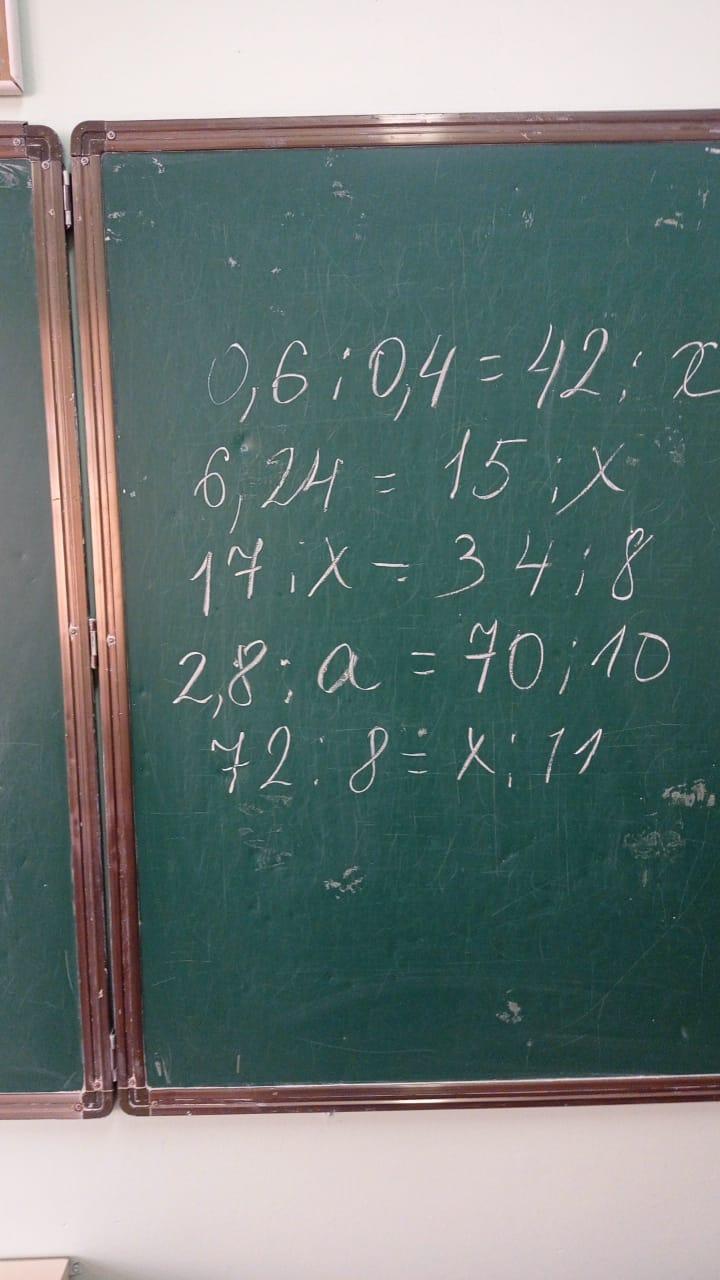 0,6 : 0,4 = 42 : x
6,24 = 15 : x
17 : x = 34 : 8
2,8 : a = 70 : 10
72 : 8 = x : 11